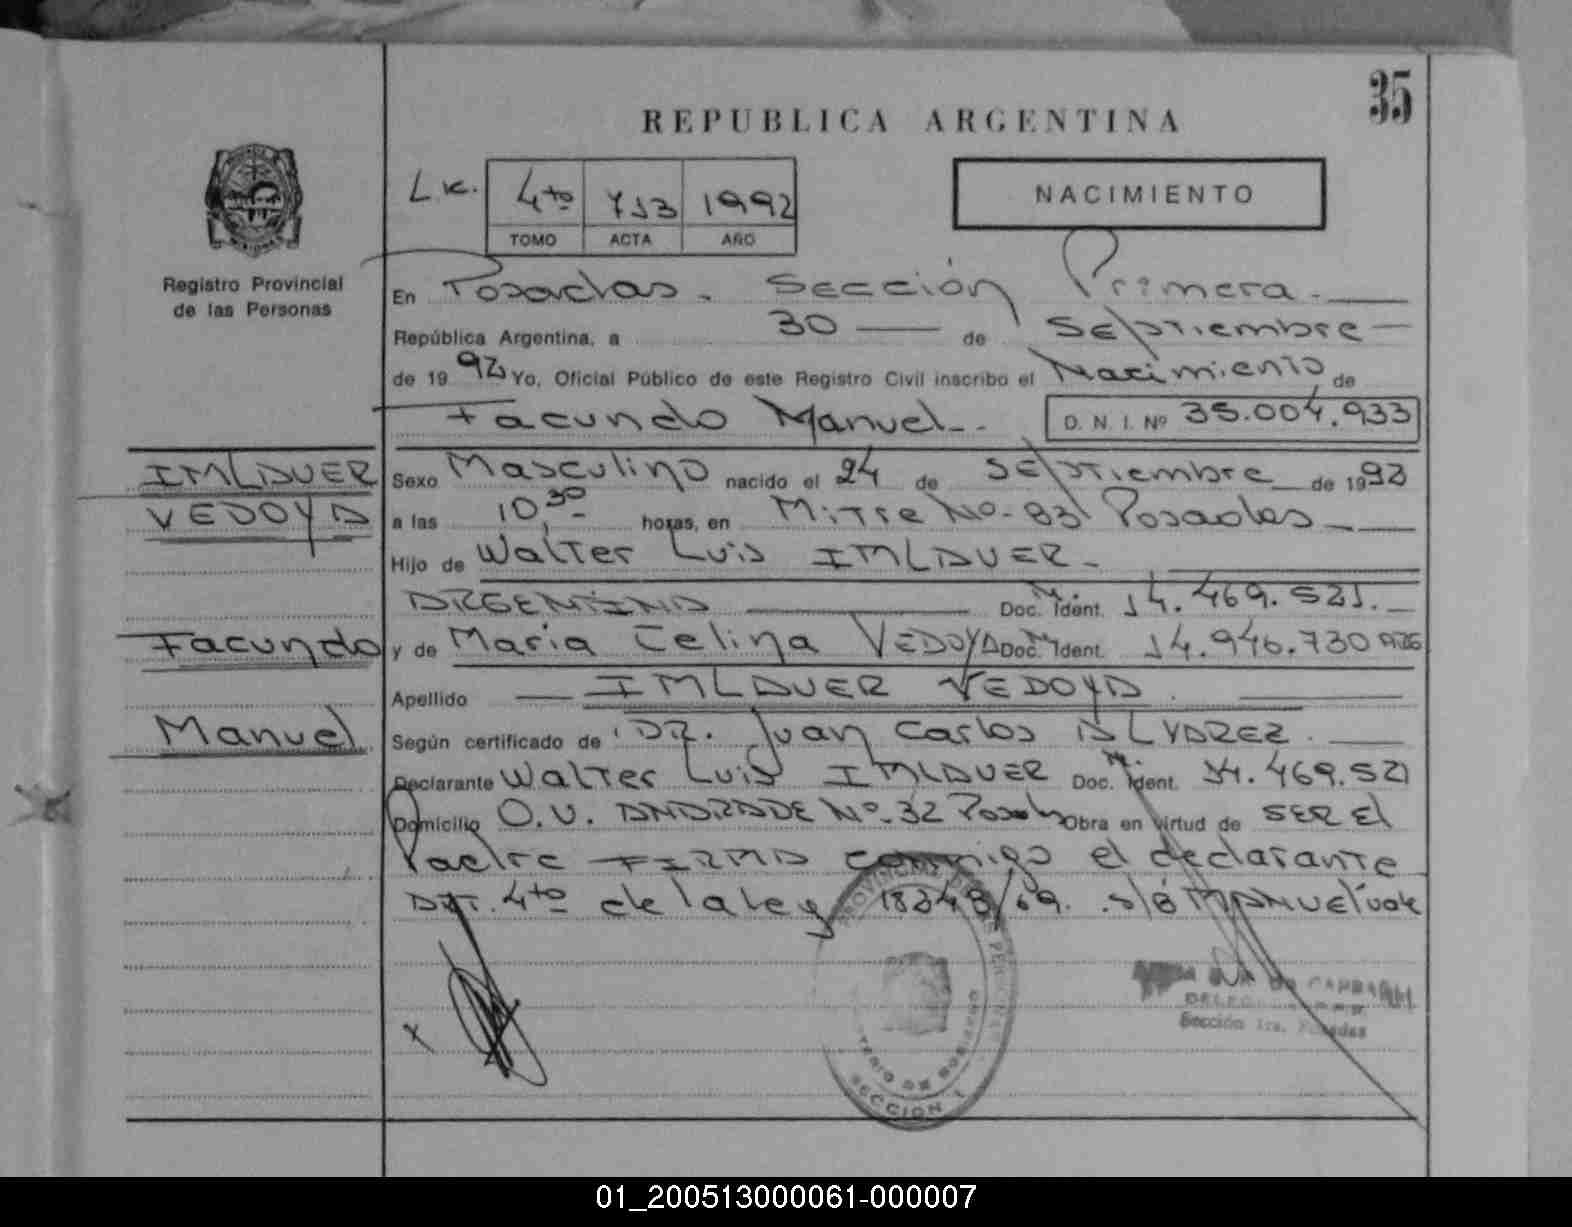 35
REPUBLICA ARGENTINA
NACIMIENTO
4to 713 1992
TOMO ACTA AÑO
Registro Provincial
de las Personas
En Posadas. Sección Primera.
República Argentina, a 30 de Septiembre
de 1992 Yo, Oficial Público de este Registro Civil inscribo el Nacimiento de
Facundo Manuel.. D. N. I. Nº 35.004.933
IMLAUER
VEDOYA
Facundo
Manuel
Sexo Masculino nacido el 24 de Septiembre de 1992
a las 10,30 horas, en Mitre Nº. 83 Posadas
Hijo de Walter Luis IMLAUER
ARGENTINA Doc. M. Ident. 14.469.521.
y de Maria Celina VEDOYA Doc. M. Ident. 14.946.730 ARG
Apellido IMLAUER VEDOYA.
Según certificado de DR. Juan Carlos ALVAREZ.
Declarante Walter Luis IMLAUER Doc. M. Ident. 14.469.521
Domicilio O.V. ANDRADE Nº. 32 Posadas Obra en virtud de SER El
Padre FIRMA conmigo el declarante
ART. 4to de la ley 18248/69. s/b MANUEL vale
PROVINCIAL DE LAS PERSONAS
MINISTERIO DE GOBIERNO
SECCION 1
Sección 1ra. Posadas
01_200513000061-000007